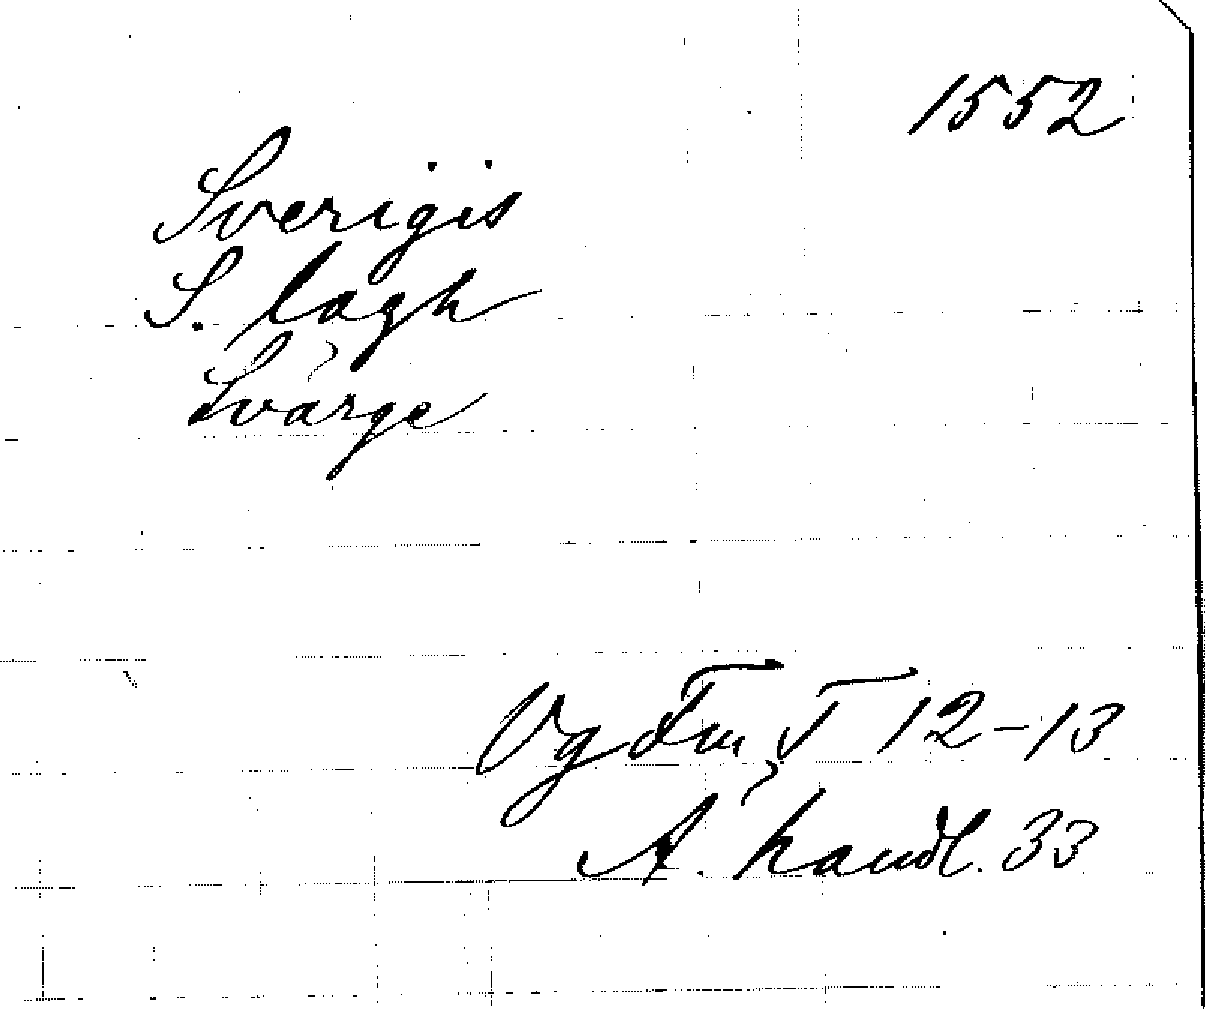 1552
Sverigis
S. lagh
Svärge
Vg Fm, I 12-13
A. handl. 33